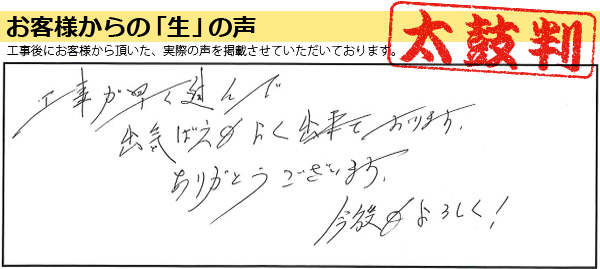 お客様からの「生」の声
太鼓判
工事後にお客様から頂いた、実際の声を掲載させていただいております。
工事が早く進んで
出気ばえもよく出来ております。
ありがとうございます。
今後もよろしく!